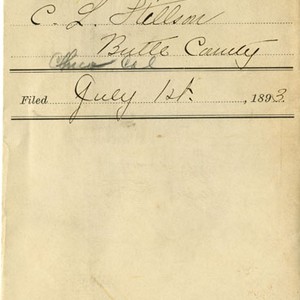 C. L. Stillson
Butte County
Chico Cal
Filed July 1st. , 1893.